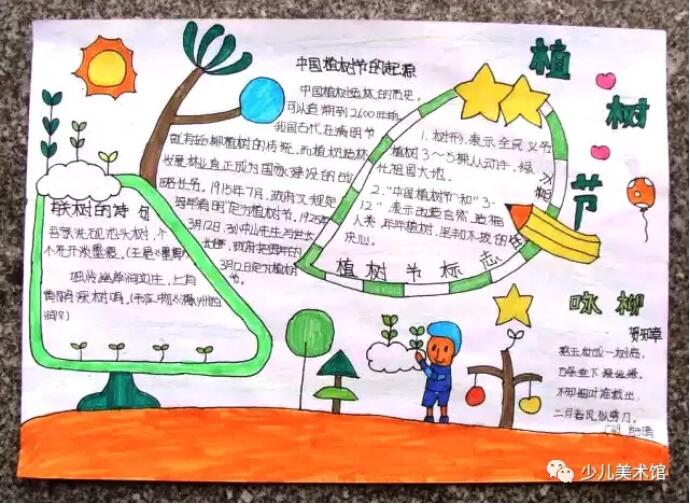 植
树
节
中国植树节的起源
中国植树造林的历史,
可以追溯到2600年前,
我国古代在清明节
就有插柳植树的传统,而植树造林
发展林业真正成为国家建设的
1915年7月,政府又规定
清明"定为植树节,1925年
3月12日,孙中山先生与世长
辞,政府把每年的
3月12日定为植树
节。
1.树形,表示全民义务
植树3～5棵人人动手,绿
化祖国大地。
2."中国植树节"和"3·
12"表示改造自然,造福
人类,年年植树,坚韧不拔的
决心。
植树节标志的
有关树的诗句
吾家洗砚池头树,个
个花开淡墨痕。(王冕《墨梅》)
独怜幽草涧边生,上有
黄鹂深树鸣。(韦应物《滁州西
涧》)
咏柳
贺知章
碧玉妆成一树高,
万条垂下绿丝绦。
不知细叶谁裁出,
二月春风似剪刀。
少儿美术馆